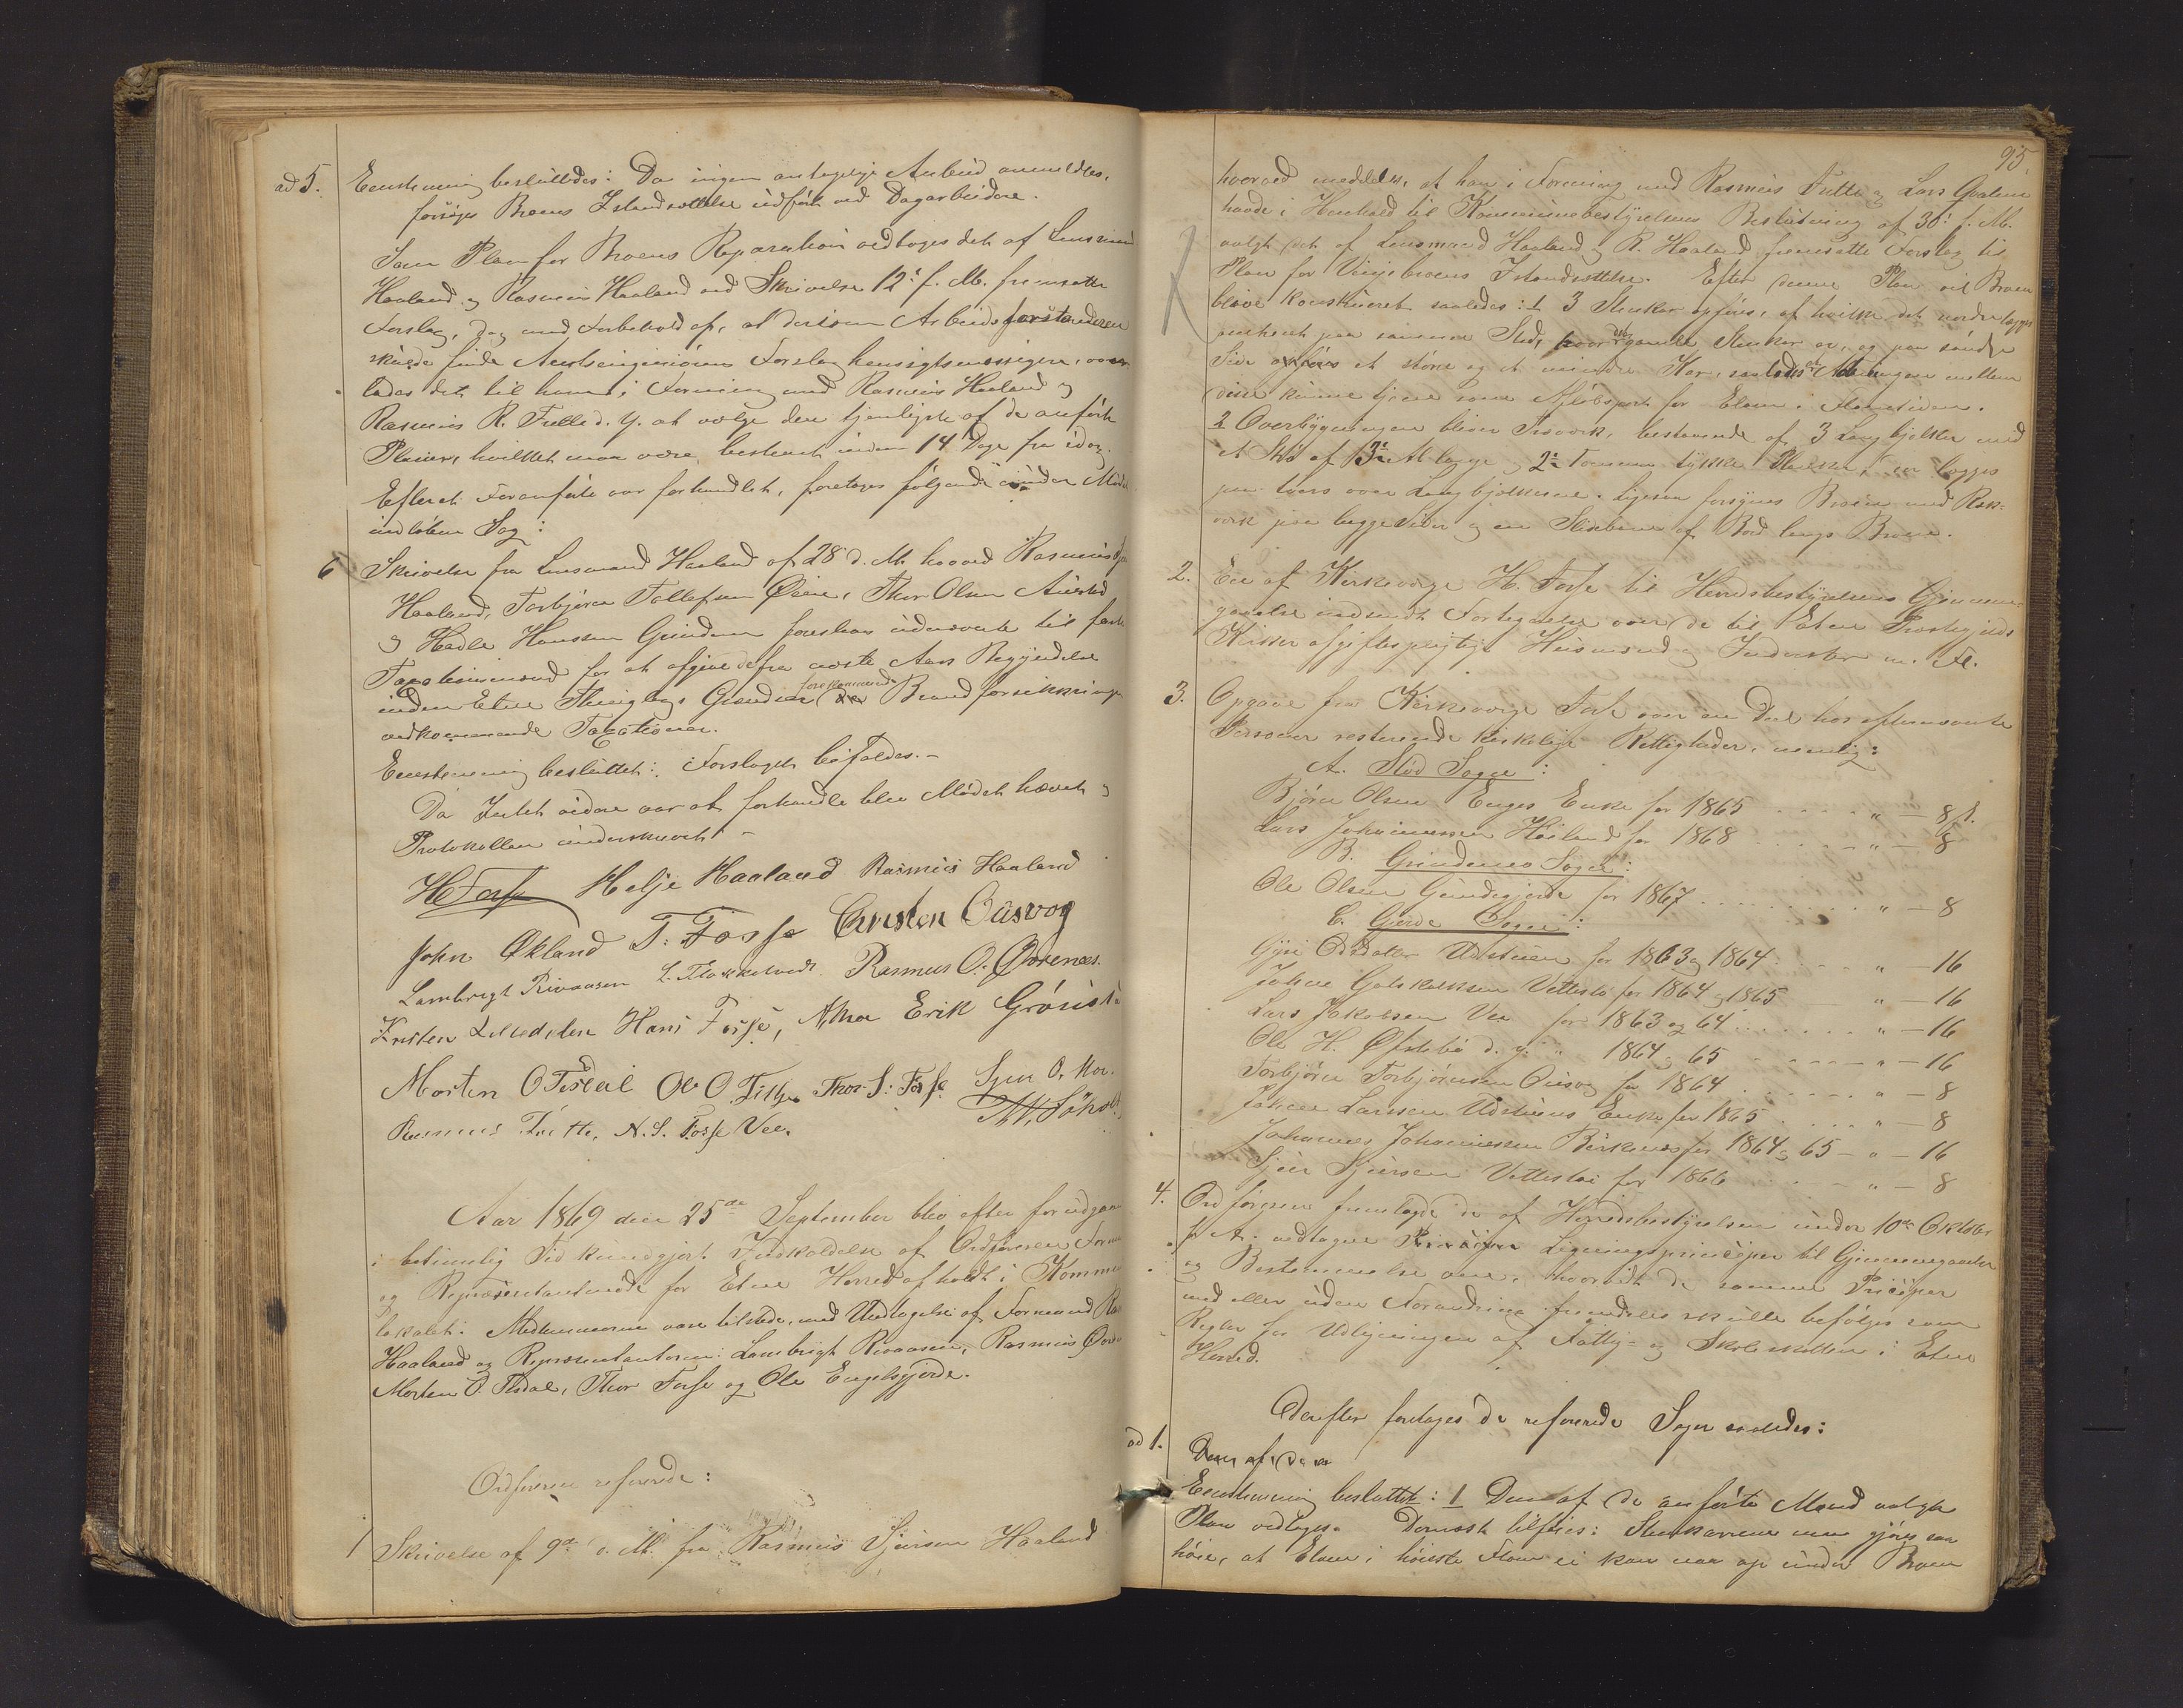 ad 5. Eenstemmig besluttedes: Da ingen antagelige Anbud anmeldtes,
forsøges Broens Istandsættelse udført ved Dagarbeidere.
Som Plan for Broens Reparation vedtoges det af Lensmand
Haaland og Rasmus Haaland ved Skrivelse 12te f. M. fremsatte
Forslag, dog med Forbehold af, at dersom Arbeidsforstanderen
skulde finde Amtsingeniørens Forslag hensigtsmæssigere, over-
lades det til ham i Forening med Rasmus Haaland og
Rasmus R. Frette d. y. at vælge den tjenligste af de anførte
Planer, hvilket maa være bestemt inden 14 Dage fra idag.
Efterat Foranførte var forhandlet, foretoges følgende under Mødet
indløbne Sag:
6 Skrivelse fra Lensmand Haaland af 28 d. M. hvorved Rasmus
Haaland, Torbjørn Tollefsen Øiene, Thor Olsen Austad
og Hadle Hansen Grindem foreslaaes udnævnte til faste
Taxationsmænd for at afgive de fra næste Aars Begyndelse
inden Etne Thinglags Grændser forekommende Brandforsikringen
vedkommende Taxationer.
Eenstemmig besluttet: Forslaget bifaldes.-
Da Intet videre var at forhandle blev Mødet hævet og
Protokollen underskrevet.-
H Fosse Helje Haaland Rasmus Haaland
John Økland T. Fosse Carsten Ousvog
Lambregt Rivaasen Rasmus O. Øvrenes.
Kristen Hans Fosse, Erik Grønstad
Morten O Tesdal Ole O. Thor S: Fosse
Rasmus Frette, N. S. Fosse Vee.
Aar 1869 den 25de September blev efter forudgaaende
i betimelig Tid kundgjort Indkaldelse af Ordføreren Formand-
og Repræsentantmøde for Etne Herred afholdt i Kommune-
lokalet. Medlemmerne vare tilstede, med Undtagelse af Formand
Haaland og Repræsentanterne: Lambregt Rivaasen, Rasmus
Morten O. Tesdal, Thor Fosse og Ole Engelsgjerde.
Ordføreren refererede:
1 Skrivelse af 9de d. M. fra Rasmus Sjursen Haaland
95.
hvorved meddeles, at han i Forening med Rasmus Frette og Lars Grindem
havde i Henhold til Kommunebestyrelsens Beslutning af 30te f. M.
valgt det af Lensmand Haaland og R. Haaland fremsatte Forslag til
Plan for Broens Istandsættelse. Efter denne Plan vil Broen
blive konstrueret saaledes: 1 3 Steenkar opføres, af hvilke det nordre lægges
paa samme Sted, hvor det gamle Steenkar er, og paa søndre
Side opføres et større og et mindre Kar, saaledes at Aabningen mellem
disse kunne tjene som for Elven i Flomtiden.
2 Overbygningen bliver Træværk, bestaaende af 3 Langbjelker med
et Slid af 3½ Al. lange og 2½ Tommer tykke Planker, som lægges
paa tvers over Langbjelkerne. Ligesom forsynes Broen med Ræk-
værk paa begge Sider og en af Bord langs Broen.
2. En af Kirkeværge H. Fosse til Herredsbestyrelsens Gjennem-
gaaelse indsendt Fortegnelse over de til Etne Præstegjelds
Kirker afgiftspligtige Huusmænd og Inderster m. Fl.
3. Opgave fra Kirkeværge Fosse over en Deel hos efternævnte
Personer resterende kirkelige Rettigheder, nemlig:
A. Stød Sogn:
Bjørn Olsen Enges Enke for 1865 " - 8 s.
Lars Johannessen Høiland for 1868 " - 8
B. Grindems Sogn:
Ole Olsen Grindegjerde for 1867 " - 8
C. Gjerde Sogn:
Gyri Odsdatter Udstuen for 1863 og 1864 " - 16
Johan Gotskalksen Vettestø for 1864 og 1865 " - 16
Lars Jakobsen Vee for 1863 og 64 " - 16
Ole H. Østebø d. y. " 1864 og 65 " - 16
Torbjørn Torbjørnsen Ousvog for 1864 " - 8
Johan Larsen Udstuens Enke for 1865 " - 8
Johannes Johannessen Birkenes for 1864 og 65 - " - 16
Sjur Sjursen Vettestø for 1866 " - 8
4. Ordføreren fremlagde de af Herredsbestyrelsen under 10de Oktober
f. A. vedtagne Ligningsprinciper til Gjennemgaaelse
og Bestemmelse om, hvorvidt de samme Principer
med eller uden Forandring fremdeles skulle befølges som
Regler for Udligningen af Fattig- og Skoleskatten i Etne
Herred.
Derefter foretoges de refererede Sager saaledes:
ad 1.
Den af de
Eenstemmig besluttet: 1 Den af de anførte Mænd valgte
Plan vedtages. Dernæst tilføies: Steenkarrene maa gjøres saa
høie, at Elven i høieste Flom ei kan naa op under Broen